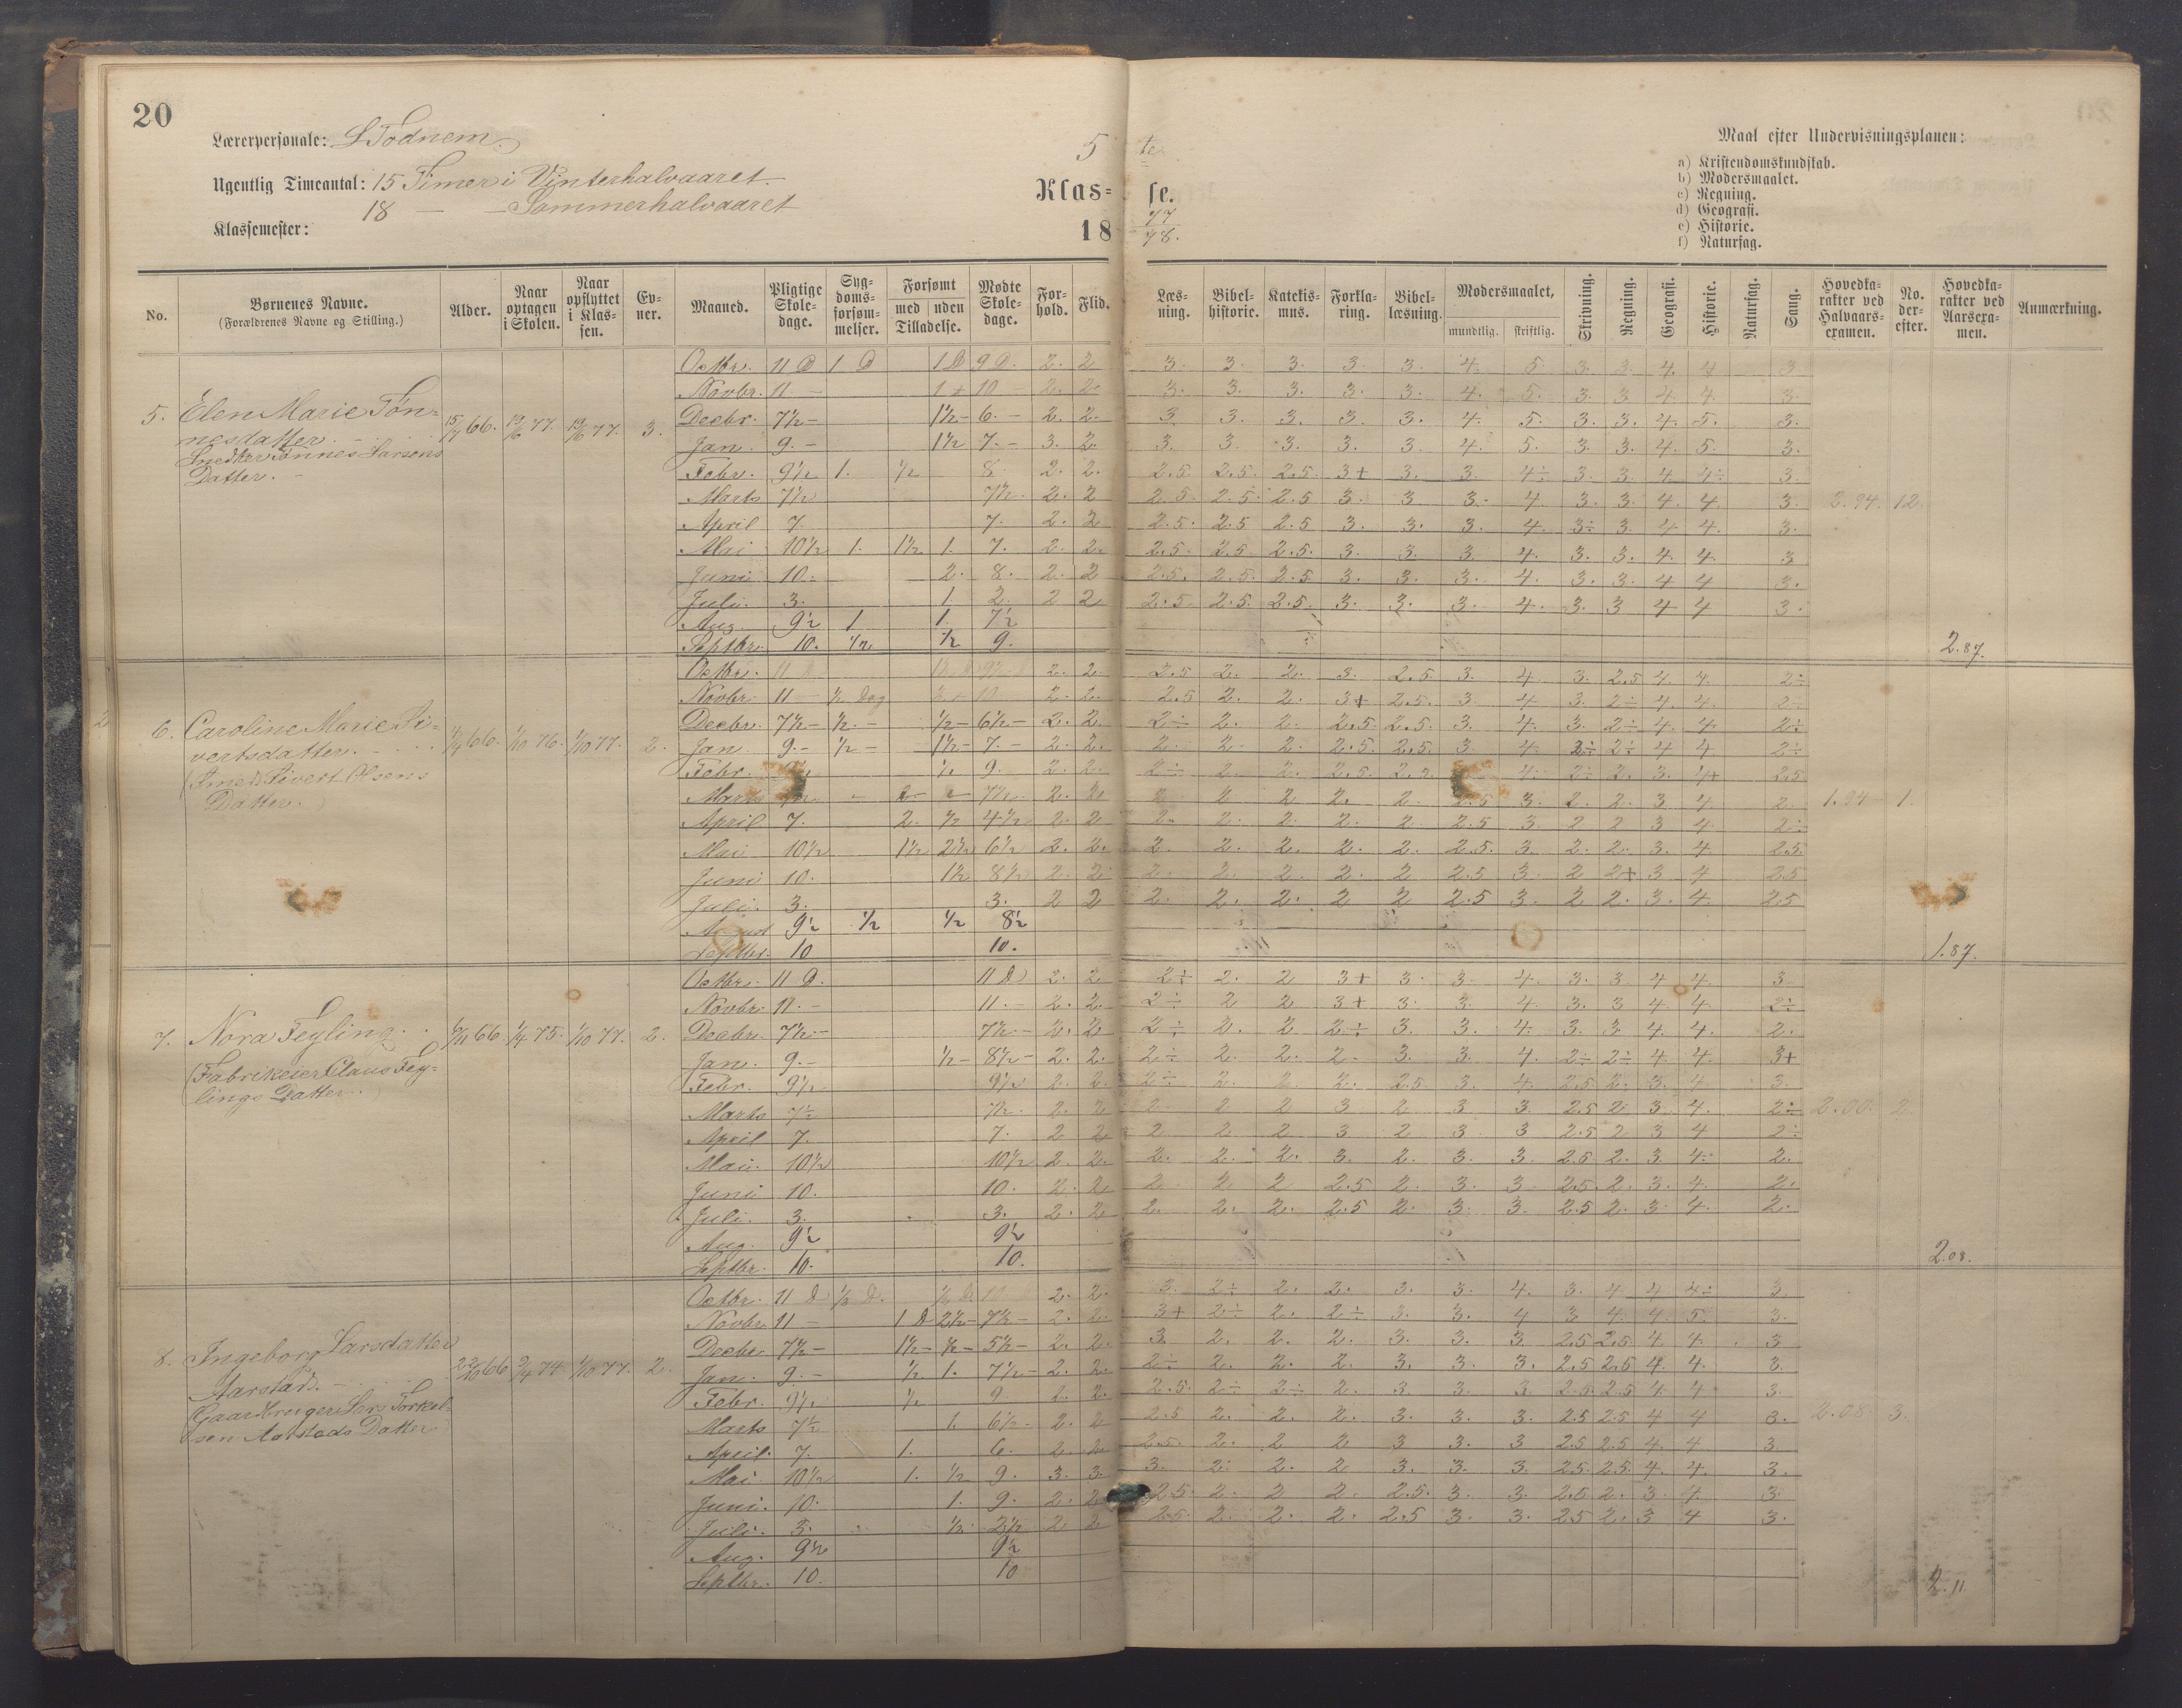 20
Lærerpersonale: S Todnem.
Ugentlig Timeantal: 15 Timer i Vinterhalvaaret.
18 — — Sommerhalvaaret
Klassemester:
5 te
Klas= se.
18 77/78.
Maal efter Undervisningsplanen:
a) Kristendomskundskab.
b) Modersmaalet.
c) Regning.
d) Geografi.
e) Historie.
f) Naturfag.
No. Børnenes Navne. (Forældrenes Navne og Stilling.) Alder. Naar optagen i Skolen. Naar opflyttet i Klassen. Evner. Maaned. Pligtige Skoledage. Sygdomsforsømmelser. Forsømt med uden Tilladelse. Mødte Skoledage. Forhold. Flid. Læsning. Bibelhistorie. Katekismus. Forklaring. Bibellæsning. Modersmaalet, mundtlig. skriftlig. Skrivning. Regning. Geografi. Historie. Naturfag. Sang. Hovedkarakter ved Halvaarsexamen. No. derefter. Hovedkarakter ved Aarsexamen. Anmærkning.
5. Elen Marie Tøn=
nesdatter.
Snedker Tønnes Larsens
Datter.
15/7 66. 19/6 77. 19/6 77. 3.
Octbr. 11 D 1 D 1 D 9 D. 2. 2 3. 3. 3. 3. 3. 4. 5. 3. 3. 4. 4 3
Novbr. 11 — 1 + 10 — 2. 2. 3. 3. 3. 3. 3. 4. 5. 3. 3 4. 4. 3.
Decbr. 7½ — 1½ — 6. — 2. 2. 3 3. 3. 3. 3. 4. 5. 3. 3. 4. 5. 3.
Jan. 9. — 1½ 7. — 3. 2. 3. 3. 3. 3. 3. 4. 5. 3. 3. 4. 5. 3.
Febr. 9½ 1. ½ 8. 2. 2. 2.5 2.5. 2.5. 3+ 3. 3. 4÷ 3. 3. 4 4÷ 3.
Marts 7½ 7½. 2. 2 2.5. 2.5. 2.5 3. 3 3. 4. 3. 3. 4. 4. 3. 2.94. 12.
April 7. 7. 2. 2 2.5. 2.5 2.5 3. 3. 3. 4. 3÷ 3. 4. 4. 3.
Mai 10½ 1. 1½ 1. 7. 2. 2. 2.5. 2.5 2.5. 3. 3. 3 4. 3. 3. 4. 4. 3
Juni 10. 2. 8. 2. 2 2.5. 2.5. 2.5 3. 3. 3. 4. 3. 3. 4 4 3.
Juli. 3. 1. 2. 2 2 2.5 2.5. 2.5. 3. 3. 3. 4. 3. 3 4 4 3.
Aug. 9½ 1 1. 7½
Septbr. 10. ½ ½ 9.
2.87.
6. Caroline Marie Si=
vertsdatter.
(Smed Sivert Olsens
Datter.)
66. 1/10 76. 1/10 77. 2.
Octbr. 11 2. 2. 2.5 2. 2. 3. 2.5 3. 4 3. 2.5 4. 4. 2÷
Novbr. 11 — ½ Dag 10 2. 2. 2.5 2. 2. 3+ 2.5. 3. 4 3. 2÷ 4. 4. 2÷
Decbr. 7½ — ½. — ½ — 6½ — 2. 2. 2÷ 2. 2. 2.5. 2.5. 3. 4. 3. 2÷ 4. 4. 2÷
Jan. 9. — ½ — 1½ — 7. — 2. 2. 2 2. 2. 2.5. 2.5. 3 4. 2÷ 2÷ 4 4. 2÷
Febr. ½ 9. 2. 2. 2÷ 2. 2. 2.5. 4. 2÷ 2. 3. 4+ 2.5
Marts 7½. 2. 2. 2 2 2 2. 2. 2.5 3. 2. 2. 3 4 2. 1.94 1.
April 7. 2. ½ 4½ 2. 2 2. 2. 2. 2. 2 2.5 3. 2 2 3 4. 2÷
Mai 10½ 1½ 2½ 6½ 2. 2. 2. 2. 2. 2. 2. 2.5. 3. 2. 2. 3. 4. 2.5.
Juni 10. 1½ 8½ 2. 2. 2. 2. 2. 2. 2 2.5 3. 2 2+ 3 4 2.5
Juli. 3. 3. 2 2 2. 2. 2. 2 2 2.5 3. 2 2. 3. 4. 2.5
August 9½ ½ ½ 8½
Septbr. 10 10.
1.87.
7. Nora Feyling.
(Fabrikeier Claus Fey=
lings Datter.)
66. 75. 1/10 77. 2.
Octbr. 11 D. 11 D 2. 2 2÷ 2. 2 3+ 3. 3. 4. 3. 3 4 4. 3.
Novbr. 11. — 11. — 2. 2. 2÷ 2 2 3+ 3. 3. 4. 3. 3 4 4. 2÷
Decbr. 7½. — 7½. — 2. 2 2÷ 2. 2 2÷ 3. 3. 4. 3. 3. 4. 4. 2.
Jan. 9. — ½ — 8½ — 2. 2. 2÷ 2. 2. 2. 3. 3. 4. 2÷ 2÷ 4. 4. 3+
Febr. 9½ 9½ 2. 2. 2÷ 2. 2. 2. 2.5 3. 4. 2.5 2. 3. 4 3.
Marts 7½ 7½. 2. 2 2 2 2 3 2 3 3. 2.5 2 3 4. 2÷ 2.00. 2
April 7. 7. 2 2 2 2 2 3 2 3 3 2.5 2 3 4 2÷
Mai. 10½ 10½ 2. 2. 2. 2. 2. 3. 2. 3. 3. 2.5 2. 3. 4. 2.
Juni 10. 10. 2. 2 2 2 2 2.5 2. 3. 3 2.5. 2. 3. 4. 2.
Juli. 3. 3. 2. 2 2. 2. 2. 2.5 2. 3. 3. 2.5 2. 3. 4. 2.
Aug. 9½ 9½
Septbr. 10. 10.
2.08.
8. Ingeborg Larsdatter
Aarstad.
(Gaardbruger Lars Torkel=
sen Aarstads Datter
66 74. 1/10 77. 2.
Octbr. 11 D ½ D. 2. 2. 3. 2÷ 2. 2. 3. 3. 4. 3. 4 4 4÷ 3.
Novbr. 11 — 1 D 2½ — 7½ — 2. 2. 3+ 2÷ 2. 2÷ 3. 3. 4 3 4. 4. 5. 3.
Decbr. 7½ — 1½ — ½ — 5½ — 2. 2. 3. 2. 2. 2. 3. 3. 3 2.5 2.5. 4 4. 3
Jan. 9. — ½ 1. 7½ — 2. 2. 2÷ 2. 2. 2. 3. 3. 3. 2.5 2.5 4. 4. 3.
Febr. 9½ ½ 9 2. 2. 2.5. 2÷ 2÷ 2. 3. 3. 3 2.5. 2.5 4. 4 3.
Marts 7½ 1. 6½ — 2. 2 2.5 2. 2. 2. 3. 3. 3. 2.5 2.5 4 4 3. 2.08 3.
April. 7. 1. 6. 2. 2. 2.5. 2. 2 2 3 3. 3 2.5 2.5 4. 4 3.
Mai 10½ 1. ½ 9. 3. 3. 3. 2. 2. 2 3. 3. 3. 2.5. 2.5. 4. 4. 3.
Juni. 10. 1. 9. 2. 2 2.5. 2. 2 2. 2.5. 3. 3. 2.5 2. 3 4. 3
Juli. 3. ½ 2½ 2 2 2.5. 2. 2. 2. 2.5 3. 3. 2.5 2. 3 4 3.
Aug. 9½ 9½
Septbr. 10. 10
2.11